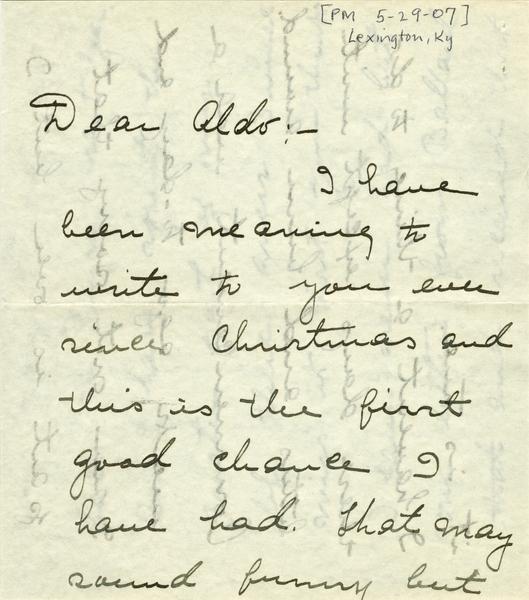 [PM 5-29-07]
Lexington, Ky
Dear Aldo:-
I have
been meaning to
write to you ever
since Christmas and
this is the first
good chance I
have had. That may
sound funny but